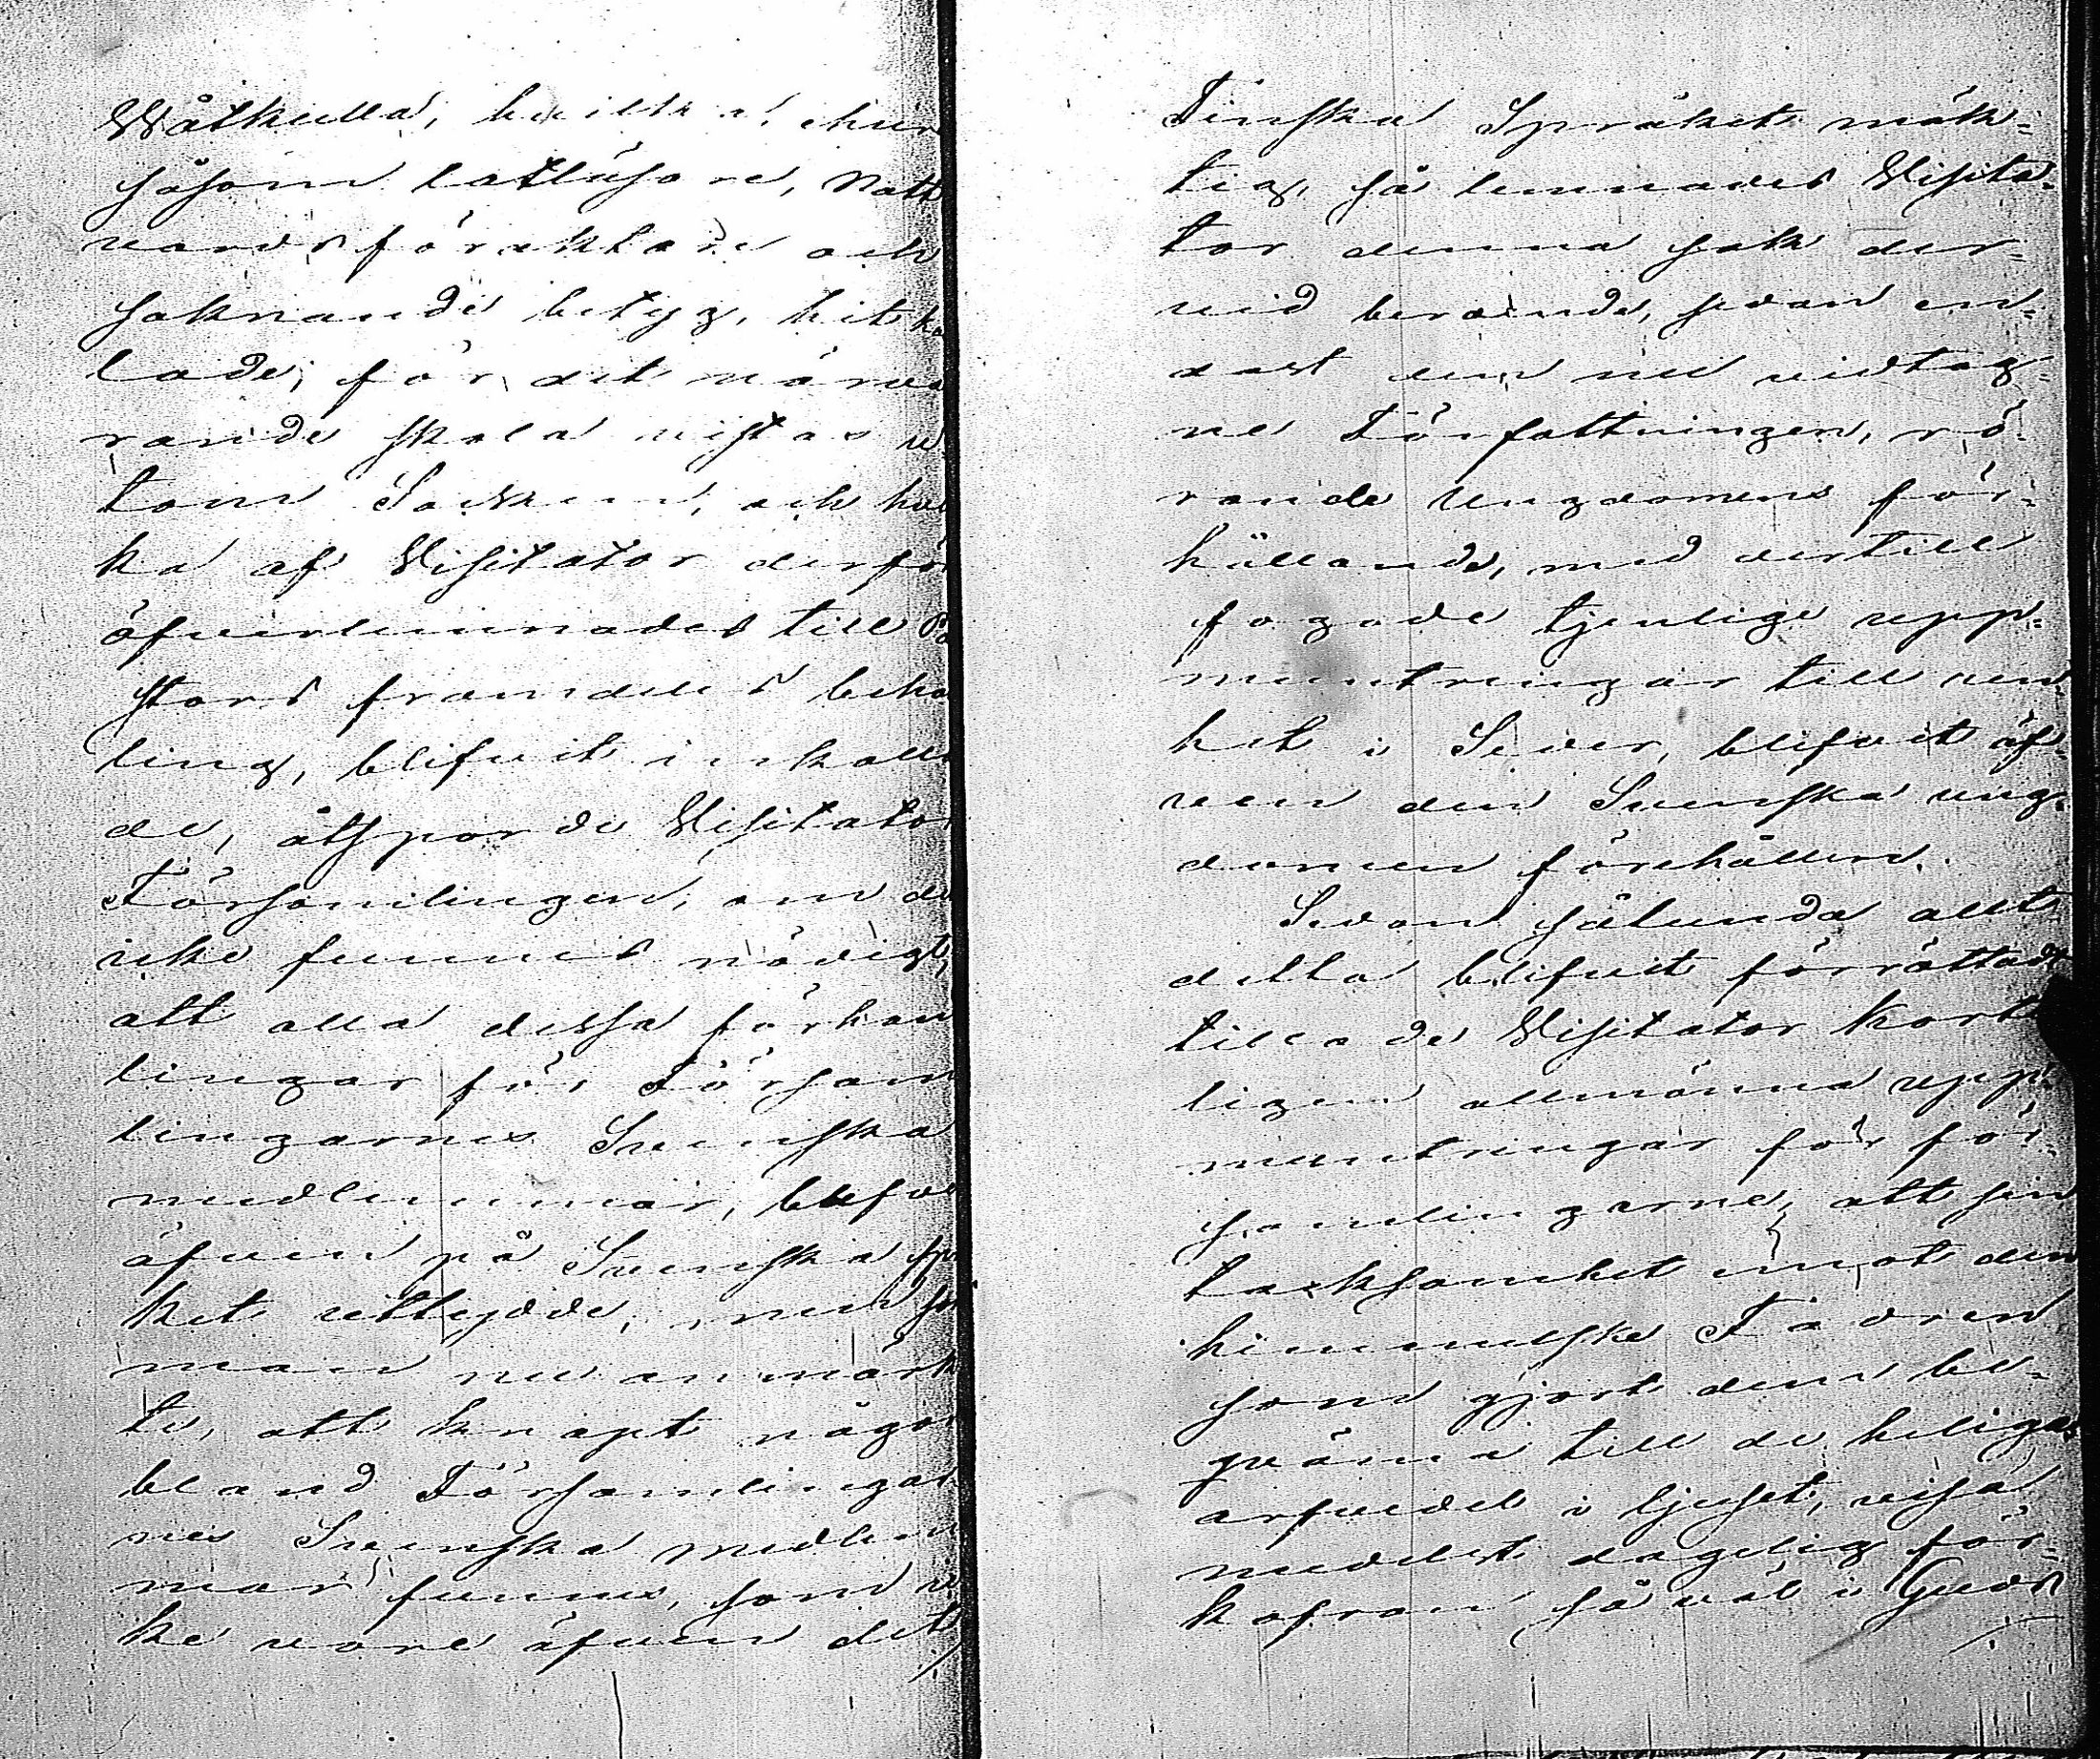 Wåtkulla, hvilka, ehuru
såsom lattläsare, Natt
vardsföraktare och
saknande betyg, hitkal
lade, för det närva
rande skola vistas u
tom Socknen, och hvil
ka af Visitator derför
öfverlemnades till Pa
stors framdeles behand
ling, blifvit inkalla
de, åtsporde Visitator
Församlingen, om det
icke funnes nödigt,
att alla dessa förhand
lingar för Församl
lingarnes Svenska
medlemmar, blefvo
äfven på Svenska språ
ket uttydde, men so
man nu anmärk
te, att knapt någon
bland Församlingar
nes Svenska medlem
mar funnes, som ic
ke vore äfven det
Finska Språket mäk-
tig, så lemnades Visita-
tor denna sak der-
vid beroende, sedan en-
dast den nu vidtag-
ne Författningen, rö-
rande Ungdomens för-
hållande, med dertill
fogade tjenlige upp-
muntringar till ren-
het i Seder, blifvit äf-
ven den Svenska ung-
domen förehållen.
Sedan sålunda allt
detta blifvit förrättadt
tillade Visitator kort
ligen allmänna upp-
muntringar för för-
samlingarne, att sin
tacksamhet emot den
himmelske Fadren
som gjort dem be-
qväma till de heligas
arfvedel i ljuset, visa
medelst dagelig för-
kofran så väl i Guds